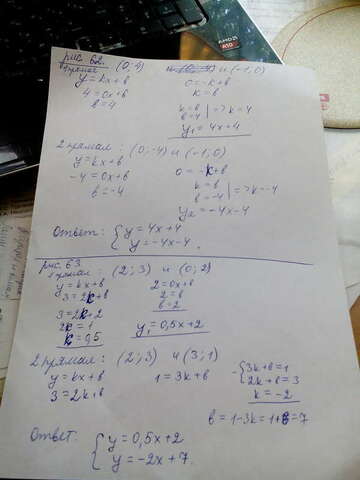 AMDA
A10
рис 62.
1 прямая: (0; 4) и (-1; 0)
y = kx+b
4 = 0x+b
b = 4
0 = -k+b
k = b
k = b
b = 4 | => k = 4
y₁ = 4x+4
2 прямая: (0; -4) и (-1; 0)
y = kx+b
-4 = 0x+b
b = -4
0 = -k+b
k = b
b = -4 | => k = -4
y₂ = -4x-4
Ответ: { y = 4x+4
y = -4x-4 .
рис. 63.
1 прямая: (2; 3) и (0; 2)
y = kx+b
3 = 2k+b
3 = 2k+2
2k = 1
k = 0,5
2 = 0x+b
2 = b
b = 2
y₁ = 0,5x+2
2 прямая: (2; 3) и (3; 1)
y = kx+b
3 = 2k+b
1 = 3k+b
- { 3k+b = 1
2k+b = 3
k = -2
b = 1-3k = 1+6 = 7
Ответ: { y = 0,5x+2
y = -2x+7 .